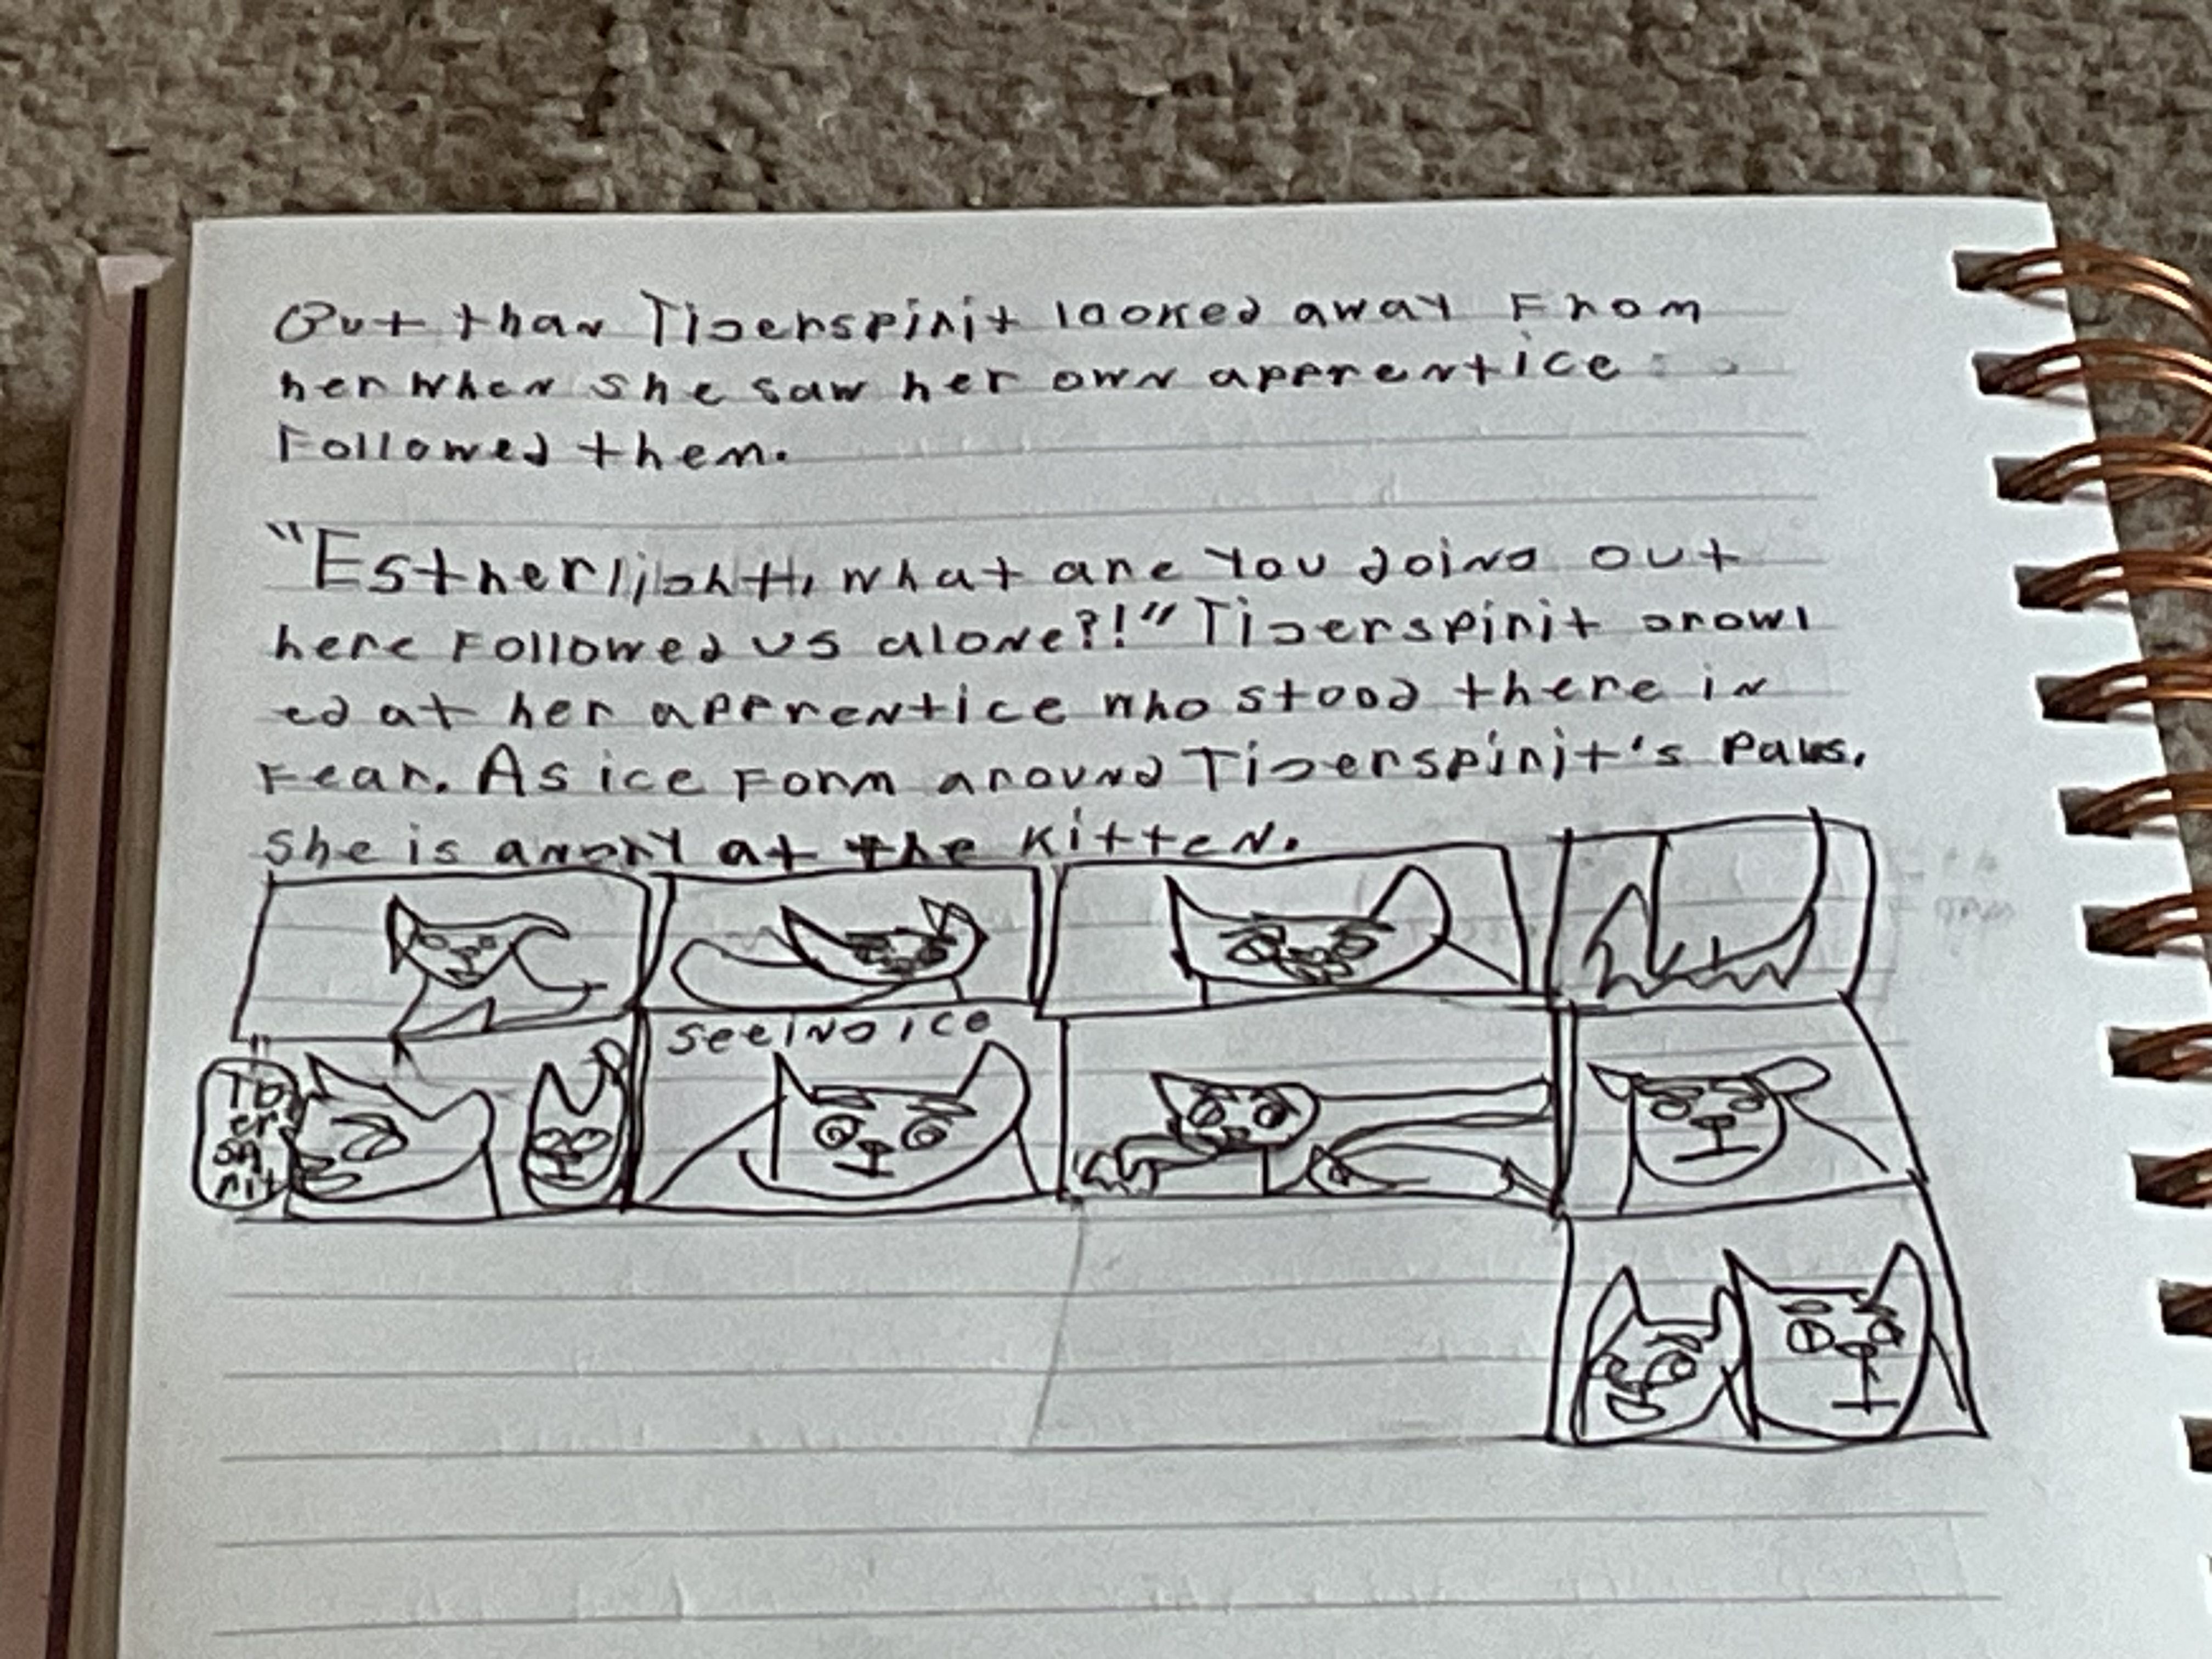 But than Tigerspirit looked away From
her when she saw her own apprentice
Followed them.
"Estherlight, what are you doing out
here Followed us alone?!" Tigerspirit growl
ed at her apprentice who stood there in
Fear. As ice Form around Tigerspirit's paws,
she is angry at the kitten.
seeing ice